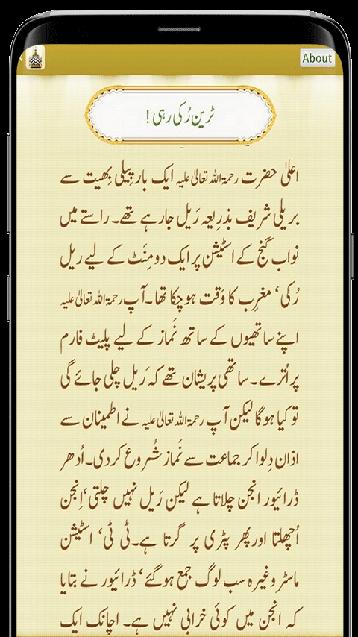 About
ٹرین رُکی رہی !
اعلیٰ حضرت رحمۃ اللہ تعالیٰ علیہ ایک بار پیلی بھیت سے
بریلی شریف بذریعہ رَیل جارہے تھے۔ راستے میں
نواب گنج کے اسٹیشن پر ایک دو مِنَٹ کے لیے ریل
رُکی‘ مغرِب کا وَقت ہو چکا تھا۔ آپ رحمۃ اللہ تعالیٰ علیہ
اپنے ساتھیوں کے ساتھ نَماز کے لیے پلیٹ فارم
پر اُترے۔ ساتھی پریشان تھے کہ رَیل چلی جائے گی
تو کیا ہوگا لیکن آپ رحمۃ اللہ تعالیٰ علیہ نے اطمینان سے
اذان دِلوا کر جماعت سے نَماز شُروع کردی۔ اُدھر
ڈرائیور انجن چلاتا ہے لیکن رَیل نہیں چلتی‘ اِنجن
اُچھلتا اور پھر پٹری پر گرتا ہے۔ ٹی ٹی‘ اسٹیشن
ماسٹر وغیرہ سب لوگ جمع ہوگئے‘ ڈرائیور نے بتایا
کہ انجن میں کوئی خرابی نہیں ہے۔ اچانک ایک